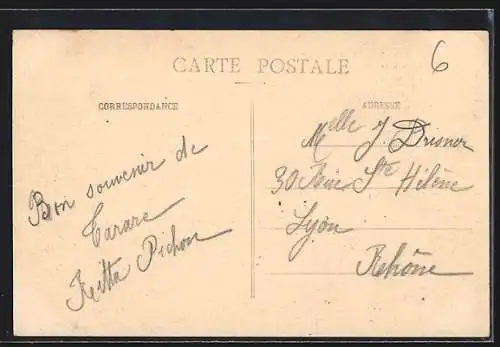 CARTE POSTALE
6
CORRESPONDANCE
ADRESSE
Bon souvenir de
Tarare
Pichon
Melle J. Drisner
30 Rue Ste Hélène
Lyon
Rhône